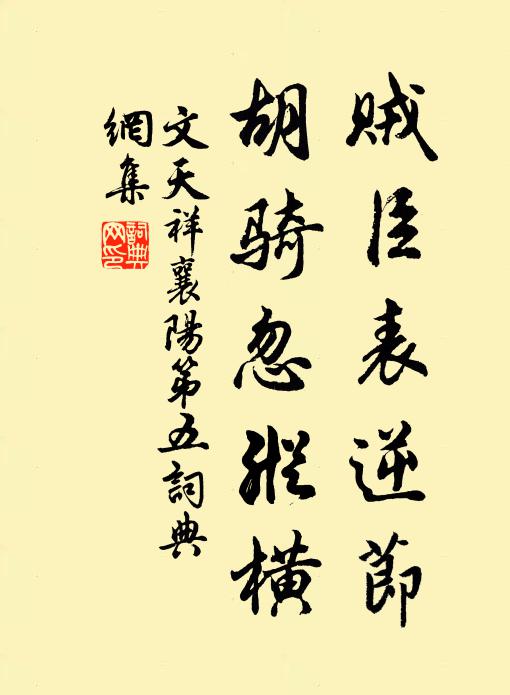 賊臣表逆節
胡騎忽縱橫
文天祥襄陽第五詞典
網集
詞典
网印